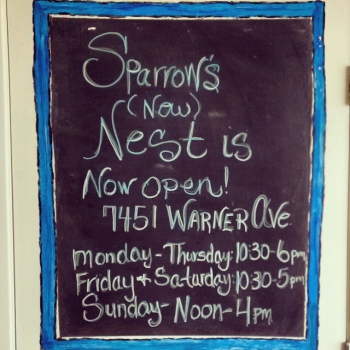 Sparrow's
(New)
Nest is
Now open!
7451 Warner Ave.
Monday - Thursday: 10:30-6pm
Friday + Saturday: 10:30-5pm
Sunday - Noon-4pm